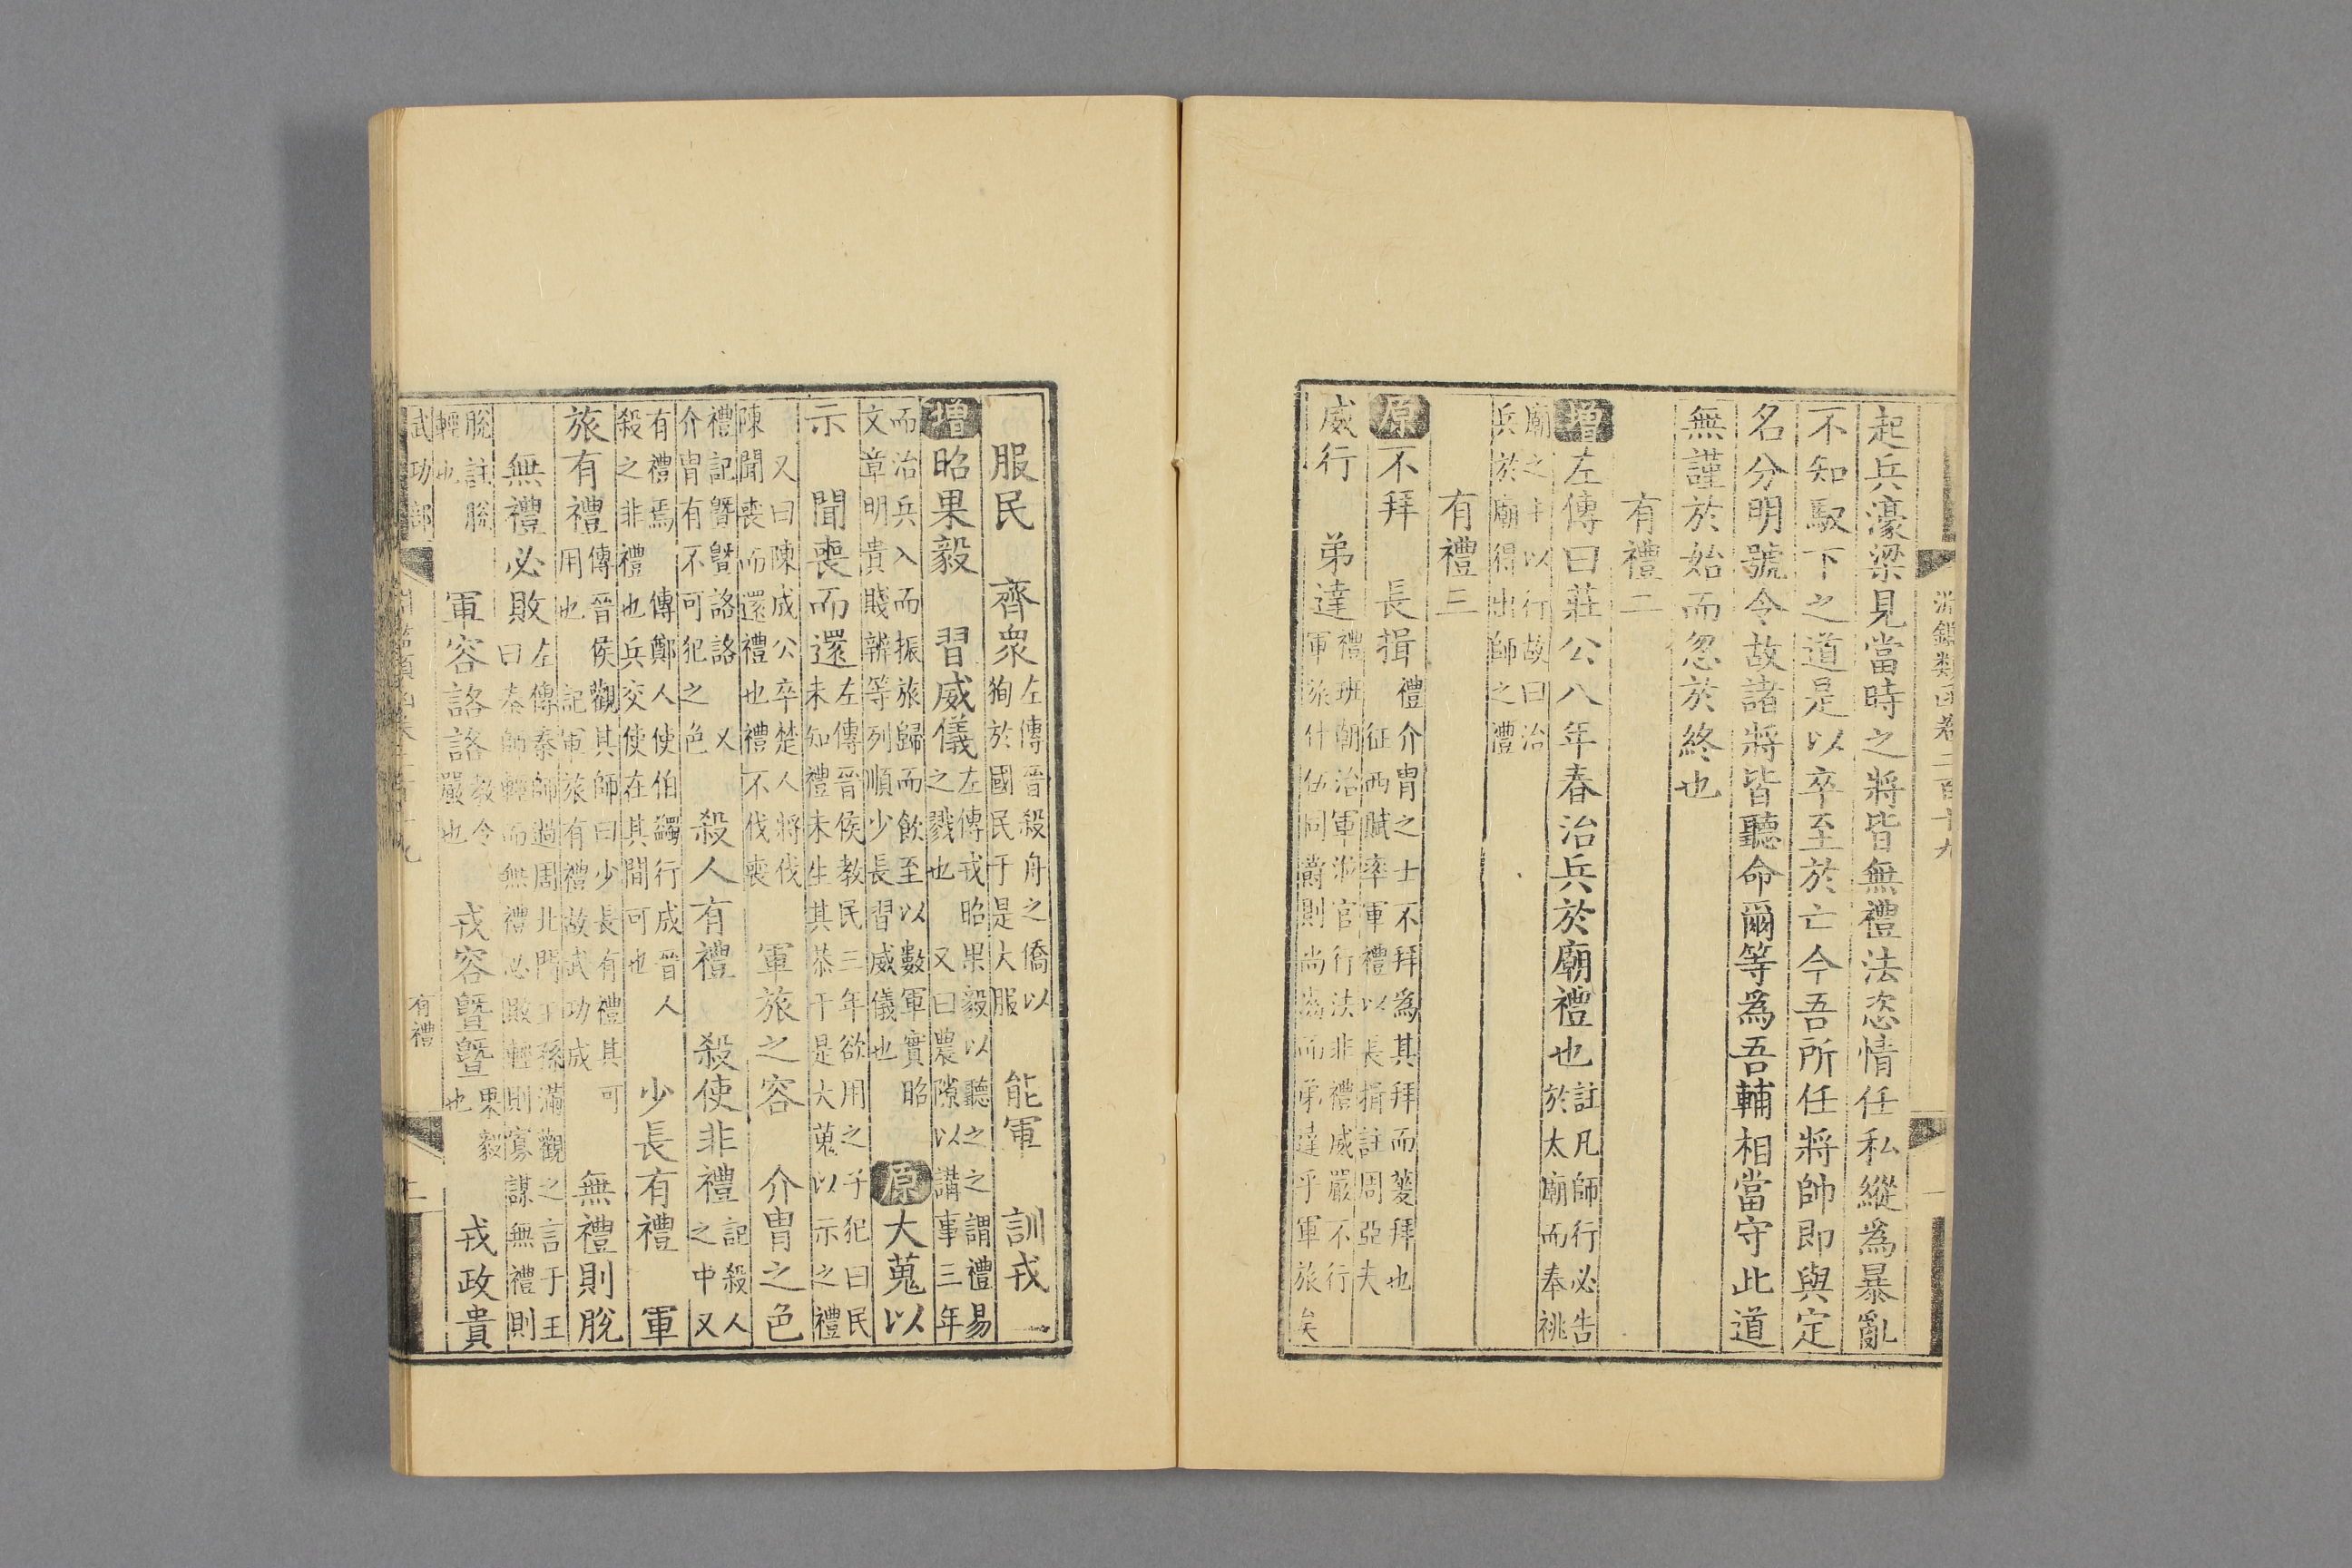 淵鑑類函卷二百十九 一
起兵濠梁見當時之將皆無禮法恣情任私縱爲暴亂
不知馭下之道是以卒至於亡今吾所任將帥即與定
名分明號令故諸將皆聽命爾等爲吾輔相當守此道
無謹於始而忽於終也
有禮二
增左傳曰莊公八年春治兵於廟禮也註凡師行必告於太廟而奉祧
廟之主以行故曰治兵於廟得出師之禮
有禮三
原不拜 長揖禮介胄之士不拜爲其拜而蓌拜也征西賦率軍禮以長揖註周亞夫
威行 弟達禮班朝治軍涖官行法非禮威嚴不行軍旅什伍同爵則尚齒而弟達乎軍旅矣
服民 齊衆左傳晉殺舟之僑以狥於國民于是大服 能軍 訓戎一
增昭果毅 習威儀左傳戎昭果毅以聽之之謂禮易之戮也 又曰農隙以講事三年
而治兵入而振旅歸而飲至以數軍實昭文章明貴賤辨等列順少長習威儀也 原大蒐以
示 聞喪而還左傳晉侯教民三年欲用之子犯曰民未知禮未生其恭于是大蒐以示之禮
又曰陳成公卒楚人將伐陳聞喪而還禮也禮不伐喪 軍旅之容 介胄之色
禮記曁曁詻詻 又介胄有不可犯之色 殺人有禮 殺使非禮記殺人之中又
有禮焉 傳鄭人使伯蠲行成晉人殺之非禮也兵交使在其間可也 少長有禮 軍
旅有禮傳晉侯觀其師曰少長有禮其可用也 記軍旅有禮故武功成 無禮則脫
無禮必敗左傳秦師過周北門王孫滿觀之言于王曰秦師輕而無禮必敗輕則寡謀無禮則
脫註脫輕也 軍容詻詻教令嚴也 戎容曁曁果毅也 戎政貴
武功部 有禮 二